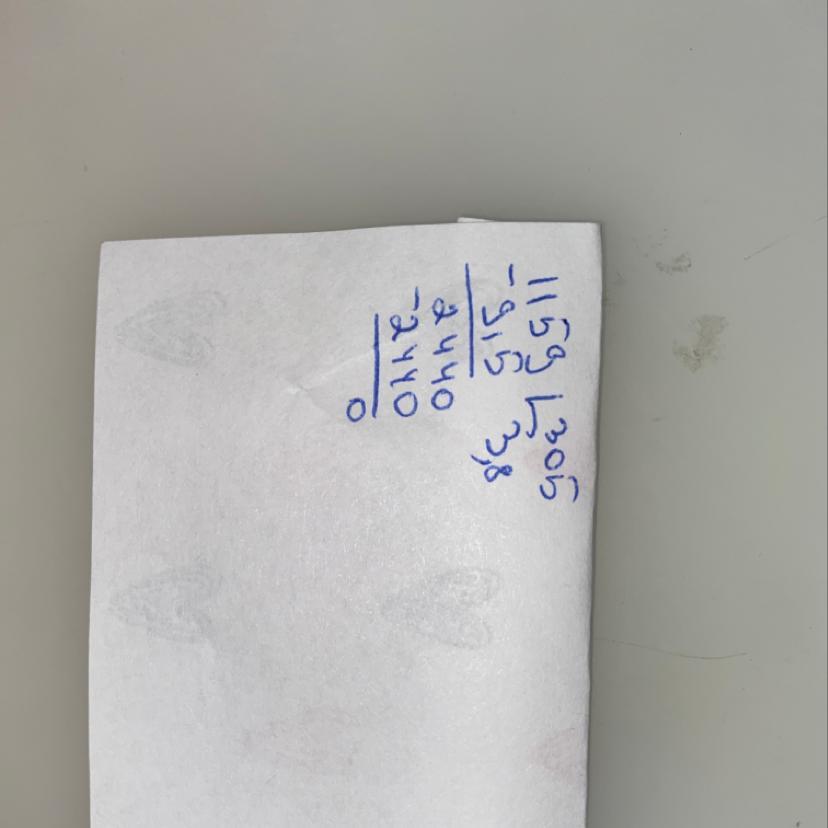 1159 305
-915 3,8
2440
-2440
0